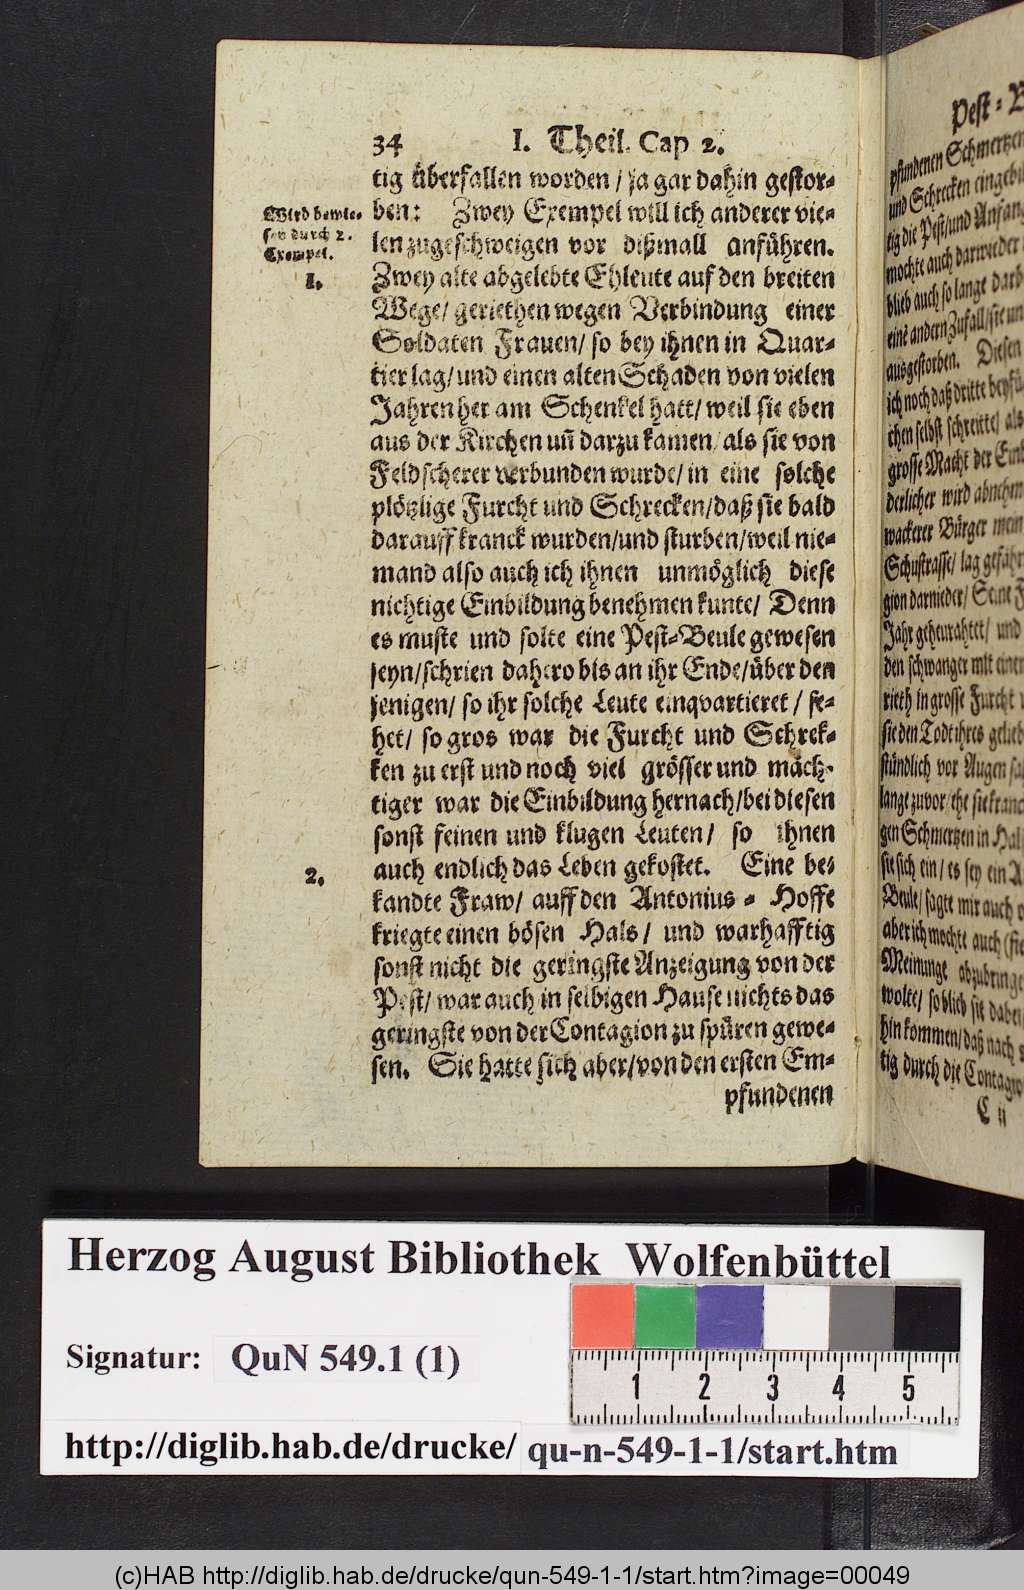 34 I. Theil. Cap 2.
tig überfallen worden / ja gar dahin gestor-
Wird bewie-
sen durch 2.
Exempel.
ben: Zwey Exempel will ich anderer vie-
len zugeschweigen vor dißmall anführen.
1.
Zwey alte abgelebte Ehleute auf den breiten
Wege/ geriethen wegen Verbindung einer
Soldaten Frauen/ so bey ihnen in Quar-
tier lag/ und einen alten Schaden von vielen
Jahren her am Schenkel hatt/ weil sie eben
aus der Kirchen uñ darzu kamen/ als sie von
Feldscherer verbunden wurde/ in eine solche
plötzlige Furcht und Schrecken/ daß sie bald
darauff kranck wurden/ und sturben/ weil nie-
mand also auch ich ihnen unmöglich diese
nichtige Einbildung benehmen kunte/ Denn
es muste und solte eine Pest-Beule gewesen
seyn/ schrien dahero bis an ihr Ende/ über den
jenigen/ so ihr solche Leute einqvartieret / se-
het/ so gros war die Furcht und Schrek-
ken zu erst und noch viel grösser und mäch-
tiger war die Einbildung hernach/ bei diesen
sonst feinen und klugen Leuten/ so ihnen
2.
auch endlich das Leben gekostet. Eine be-
kandte Fraw/ auff den Antonius-Hoffe
kriegte einen bösen Hals/ und warhafftig
sonst nicht die geringste Anzeigung von der
Pest/ war auch in selbigen Hause nichts das
geringste von der Contagion zu spüren gewe-
sen. Sie hatte sich aber/ von den ersten Em-
pfundenen
Pest-B
pfundenen Schmertzen
und Schrecken eingebil
tig die Pest/ und Anfan
mochte auch darwieder
blieb auch so lange darb
eine andern Zufall/ sie un
ausgestorben. Diesen
ich noch daß dritte beyfü
chen selbst schreittel als
grosse Macht der Einb
derlicher wird abnehm
wackerer Bürger mein
Schustrasse/ lag gefähr
gion darnieder/ Seine F
Jahr geheurahtet/ und
den schwanger mit einem
rieth in grosse Furcht
sie den Todt ihres gelieb
stündlich vor Augen sa
lange zuvor/ ehe sie kranc
gen Schmertzen in Hal
sie sich ein/ es sey ein A
Beule/ sagte mir auch
aber ich mochte auch
Meinunge abzubringe
wolte/ so blieb sie dabei
hin kommen/ daß nach
tig durch die Contagio
C ij
Herzog August Bibliothek Wolfenbüttel
Signatur: QuN 549.1 (1)
1 2 3 4 5
http://diglib.hab.de/drucke/ qu-n-549-1-1/start.htm
(c)HAB http://diglib.hab.de/drucke/qun-549-1-1/start.htm?image=00049